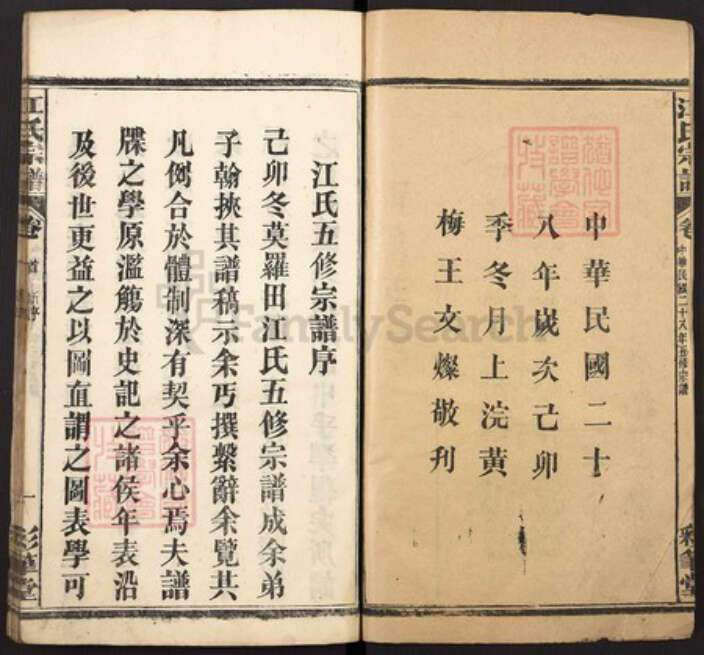 江氏宗譜
卷
中華民國二十八年五修宗譜
彩筆堂
中華民國二十
八年歲次己卯
季冬月上浣黃
梅王文燦敬刊
江氏五修宗譜序
己卯冬莫羅田江氏五修宗譜成余弟
子翰挾其譜稿示余丐撰繫辭余覽其
凡例合於體制深有契乎余心焉夫譜
牒之學原濫觴於史記之諸侯年表沿
及後世更益之以圖直謂之圖表學可
江氏宗譜
卷
首
一
彩筆堂
FamilySearch